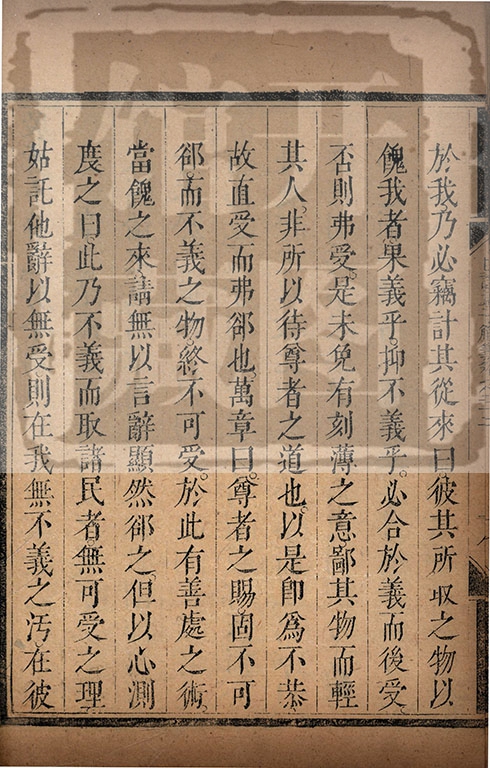 於我乃必竊計其從來曰彼其所取之物以
餽我者果義乎抑不義乎必合於義而後受
否則弗受是未免有刻薄之意鄙其物而輕
其人非所以待尊者之道也以是卽爲不恭
故直受而弗郤也萬章曰尊者之賜固不可
郤而不義之物終不可受於此有善處之術
當餽之來請無以言辭顯然郤之但以心測
度之曰此乃不義而取諸民者無可受之理
姑託他辭以無受則在我無不義之汚在彼